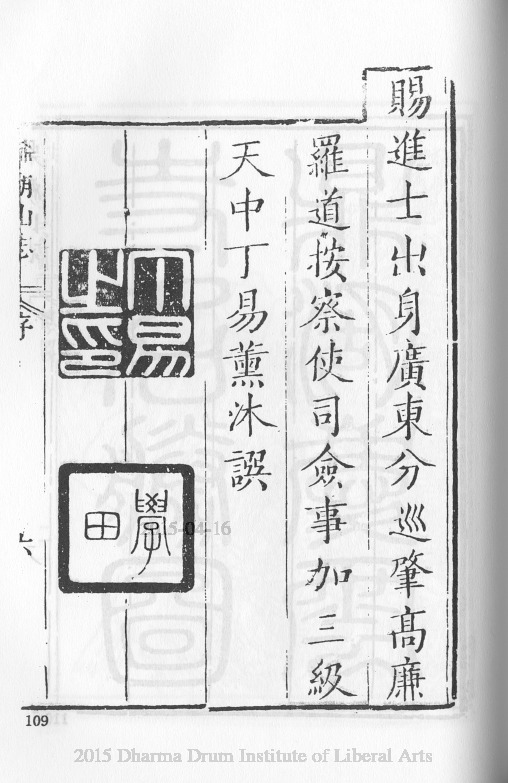 賜進士出身廣東分巡肇高廉
羅道按察使司僉事加三級
天中丁易薰沐譔
丁易之印
學田
鼎湖山志
序
六
109
2015-04-16
2015 Dharma Drum Institute of Liberal Arts